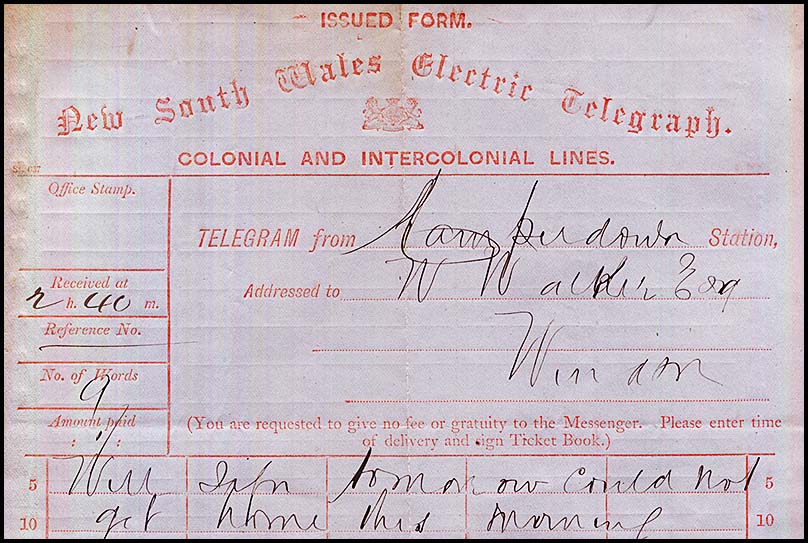 ISSUED FORM.
New South Wales Electric Telegraph.
COLONIAL AND INTERCOLONIAL LINES.
Office Stamp.
TELEGRAM from Camperdown Station,
Received at
2 h. 40 m.
Addressed to W Walker Esq
Reference No.
Windsor
No. of Words
9
Amount paid
: 1/ :
(You are requested to give no fee or gratuity to the Messenger. Please enter time
of delivery and sign Ticket Book.)
5 Will tomorrow could not 5
10 get home this morning 10